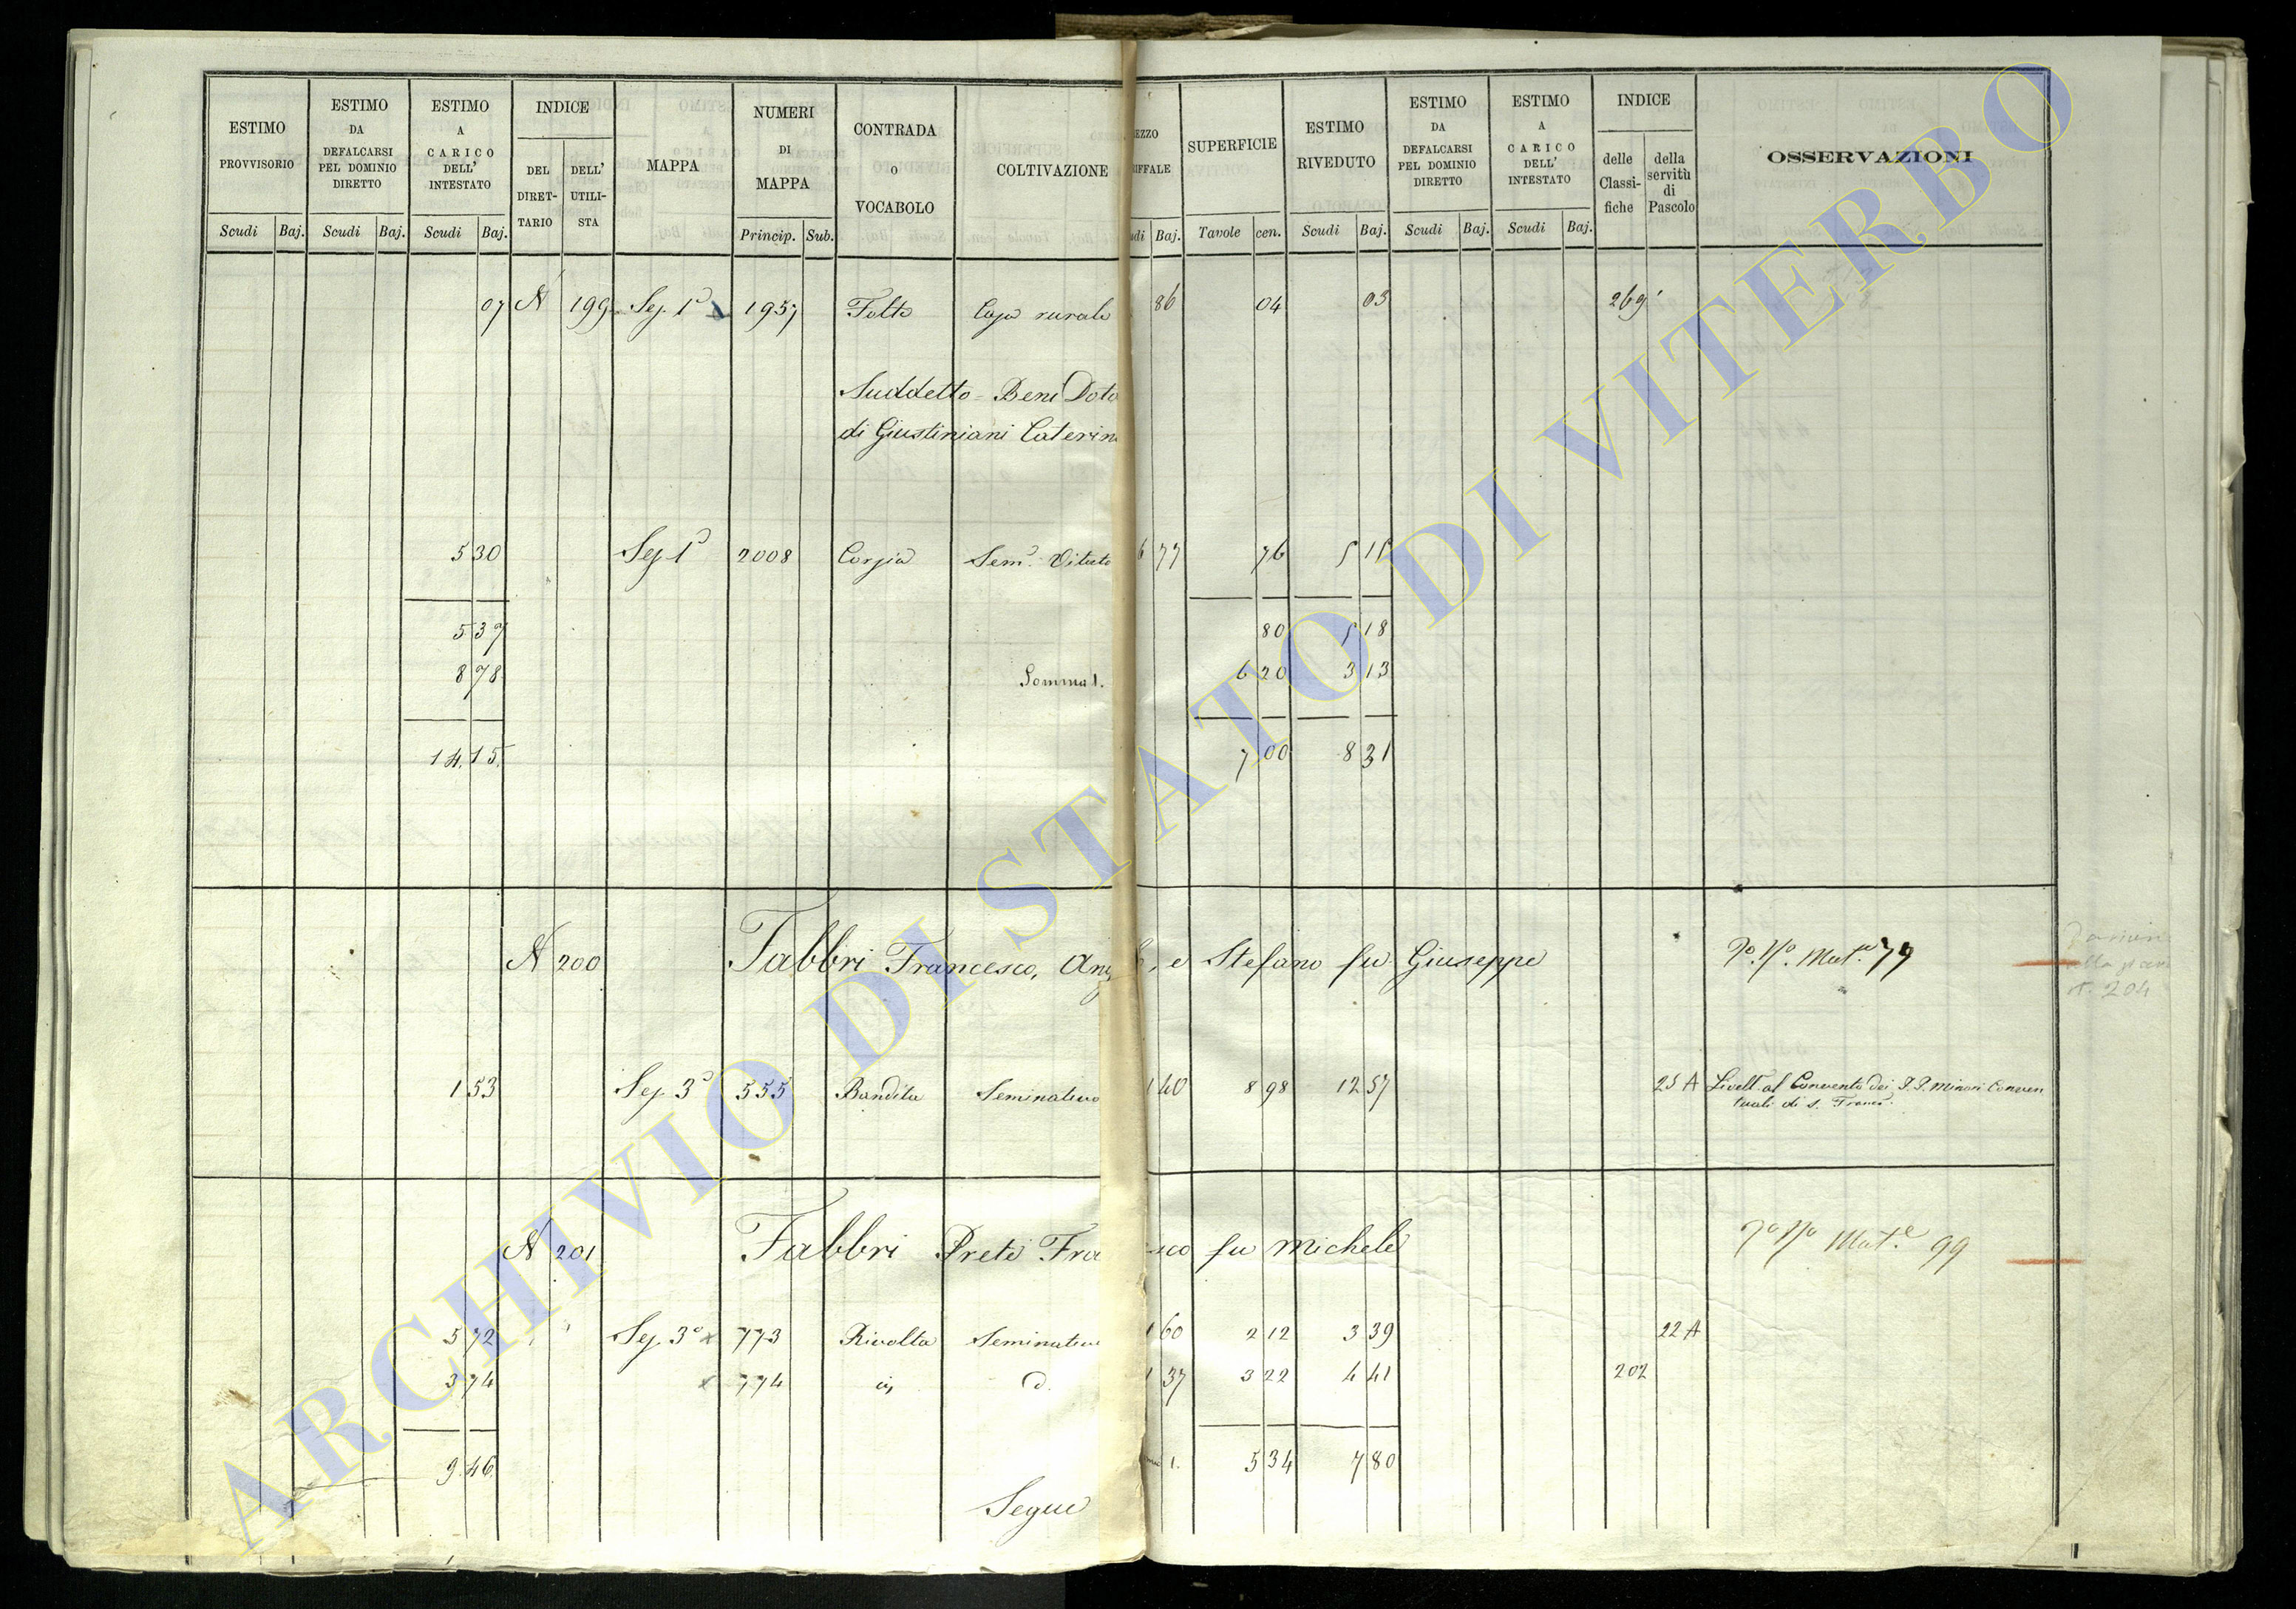 ESTIMO PROVVISORIO
ESTIMO DA DEFALCARSI PEL DOMINIO DIRETTO
ESTIMO A CARICO DELL' INTESTATO
INDICE
DEL DIRET- TARIO
DELL' UTILI- STA
MAPPA
NUMERI DI MAPPA
CONTRADA O VOCABOLO
COLTIVAZIONE
EZZO
IFFALE
SUPERFICIE
ESTIMO RIVEDUTO
ESTIMO DA DEFALCARSI PEL DOMINIO DIRETTO
ESTIMO A CARICO DELL' INTESTATO
INDICE
delle Classi- fiche
della servitù di Pascolo
OSSERVAZIONI
Scudi Baj. Scudi Baj. Scudi Baj. Princip. Sub. udi Baj. Tavole cen. Scudi Baj. Scudi Baj. Scudi Baj.
07 N 199 Sez. 1ª 1957 Casa rurale 86 04 03 269
Suddetto - Beni Dota
di Giustiniani Caterin
5 30 Sez. 1ª 2008 Sem. Vitato 6 77 76 5 15
5 37 80 5 18
8 78 Somma 1. 6 20 3 13
14.15. 7 00 8 31
N 200 Fabbri Francesco, Ang e Stefano fu Giuseppe 79
N. 204
1 53 Sez. 3ª 555 Bandita Seminativo 1 40 8 98 12 57 25 A Livell. al Convento dei P.P. Minori Conven
tuali di S. Franc.
N 201 Fabbri Prete Fra sco fu Michele 99
5 72 Sez. 3ª x 773 Rivolta Seminativo 1 60 2 12 3 39 22 A
3 74 x 774 d. 1 37 3 22 4 41 202
9.46 1. 5 34 7 80
Segue
ARCHIVIO DI STATO DI VITERBO